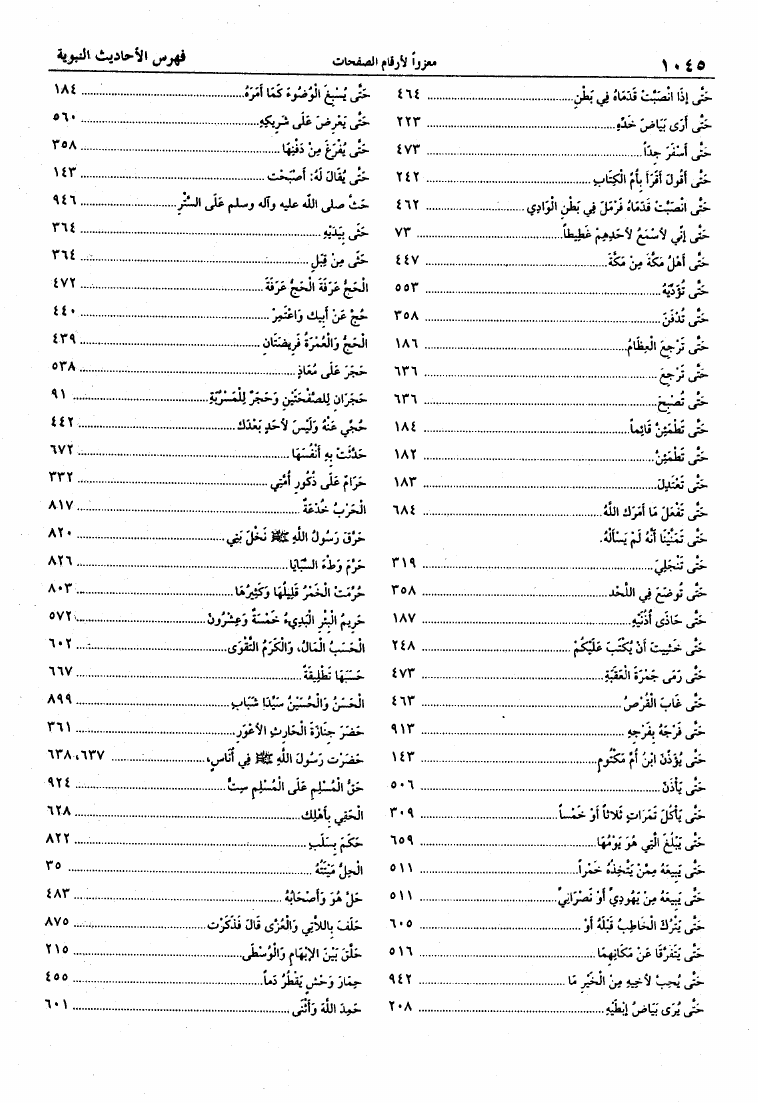 ١٠٤٥ معزواً لأرقام الصفحات فهرس الأحاديث النبوية
حَتَّى إذَا انْصَبَّتْ قَدَمَاهُ فِي بَطْنِ ٤٦٤
حَتَّى أَرَى بَيَاضَ خَدِّهِ ٢٢٣
حَتَّى أَسْفَرَ جِدّاً ٤٧٣
حَتَّى أَقُولَ أَقَرَأَ بِأُمِّ الْكِتَابِ ٢٤٢
حَتَّى انْصَبَّتْ قَدَمَاهُ فَرَمَلَ فِي بَطْنِ الْوَادِي ٤٦٢
حَتَّى إنِّي لأَسْمَعُ لأَحَدِهِمْ غَطِيطاً ٧٣
حَتَّى أَهْلُ مَكَّةَ مِنْ مَكَّةَ ٤٤٧
حَتَّى تُؤَدِّيَهُ ٥٥٣
حَتَّى تُدْفَنَ ٣٥٨
حَتَّى تَرْجِعَ الْعِظَامُ ١٨٦
حَتَّى تَرْجِعَ ٦٣٦
حَتَّى تُصْبِحَ ٦٣٦
حَتَّى تَطْمَئِنَّ قَائِماً ١٨٤
حَتَّى تَطْمَئِنَّ ١٨٢
حَتَّى تَعْتَدِلَ ١٨٣
حَتَّى تَفْعَلَ مَا أَمَرَكَ اللَّهُ ٦٨٤
حَتَّى تَمَنَّيْنَا أَنَّهُ لَمْ يَسْأَلْهُ.
حَتَّى تَنْجَلِيَ ٣١٩
حَتَّى تُوضَعَ فِي اللَّحْد ٣٥٨
حَتَّى حَاذَى أُذُنَيْهِ ١٨٧
حَتَّى خَشِيت أَنْ يُكْتَبَ عَلَيْكُمْ ٢٤٨
حَتَّى رَمَى جَمْرَةَ الْعَقَبَةِ ٤٧٣
حَتَّى غَابَ الْقُرْصُ ٤٦٣
حَتَّى فَرْجَهُ بِفَرْجِهِ ٩١٣
حَتَّى يُؤَذِّنَ ابْنُ أُمِّ مَكْتُومٍ ١٤٣
حَتَّى يَأْذَنَ ٥٠٦
حَتَّى يَأْكُلَ تَمَرَاتٍ ثَلاثاً أَوْ خَمْساً ٣٠٩
حَتَّى يَبْلُغَ الَّتِي هُوَ يَوْمُهَا ٦٥٩
حَتَّى يَبِيعَهُ مِمَّنْ يَتَّخِذُهُ خَمْراً ٥١١
حَتَّى يَبِيعَهُ مِنْ يَهُودِيٍّ أَوْ نَصْرَانِيٍّ ٥١١
حَتَّى يَتْرُكَ الْخَاطِبُ قَبْلَهُ أَوْ ٦٠٥
حَتَّى يَتَفَرَّقَا عَنْ مَكَانِهِمَا ٥١٦
حَتَّى يُحِبَّ لأَخِيهِ مِنْ الْخَيْرِ مَا ٩٤٢
حَتَّى يُرَى بَيَاضُ إبْطَيْهِ ٢٠٨
حَتَّى يُسْبِغَ الْوُضُوءَ كَمَا أَمَرَهُ ١٨٤
حَتَّى يَعْرِضَ عَلَى شَرِيكِهِ ٥٦٠
حَتَّى يُفْرَغَ مِنْ دَفْنِهَا ٣٥٨
حَتَّى يُقَالَ لَهُ: أَصْبَحْت ١٤٣
حَثَّ صلى الله عليه وآله وسلم عَلَى السَّتْرِ ٩٤٦
حَثَى بِيَدَيْهِ ٣٦٤
حَثَى مِنْ قِبَلِ ٣٦٤
الْحَجُّ عَرَفَةُ الْحَجُّ عَرَفَةُ ٤٧٢
حُجَّ عَنْ أَبِيك وَاعْتَمِرْ ٤٤٠
الْحَجُّ وَالْعُمْرَةُ فَرِيضَتَانِ ٤٣٩
حَجَرَ عَلَى مُعَاذٍ ٥٣٨
حَجَرَانِ لِلصَّفْحَتَيْنِ وَحَجَرٌ لِلْمَسْرُبَةِ ٩١
حُجِّي عَنْهُ وَلَيْسَ لأَحَدٍ بَعْدَك ٤٤٢
حَدَّثَتْ بِهِ أَنْفُسَهَا ٦٧٢
حَرَامٌ عَلَى ذُكُورِ أُمَّتِي ٣٣٢
الْحَرْبُ خُدْعَةٌ ٨١٧
حَرَّقَ رَسُولُ اللَّهِ ﷺ نَخْلَ بَنِي ٨٢٠
حَرَّمَ وَطْءَ السَّبَايَا ٨٢٦
حُرِّمَتْ الْخَمْرُ قَلِيلُهَا وَكَثِيرُهَا ٨٠٣
حَرِيمُ الْبِئْرِ الْبَدِيءِ خَمْسَةٌ وَعِشْرُونَ ٥٧٢
الْحَسَبُ الْمَالُ، وَالْكَرَمُ التَّقْوَى ٦٠٢
حَسَبَهَا تَطْلِيقَةً ٦٦٧
الْحَسَنُ وَالْحُسَيْنُ سَيِّدَا شَبَابِ ٨٩٩
حَضَرَ جِنَازَةَ الْحَارِثِ الأَعْوَرِ ٣٦١
حَضَرْت رَسُولَ اللَّهِ ﷺ فِي أُنَاسٍ، ٦٣٧، ٦٣٨
حَقُّ الْمُسْلِمِ عَلَى الْمُسْلِمِ سِتٌّ ٩٢٤
الْحَقِي بِأَهْلِك ٦٢٨
حَكَمَ بِسَلَبِ ٨٢٢
الْحِلُّ مَيْتَتُهُ ٣٥
حَلَّ هُوَ وَأَصْحَابُهُ ٤٨٣
حَلَفَ بِاَللَّاتِي وَالْعُزَّى قَالَ فَذَكَرْت ٨٧٥
حَلَّقَ بَيْنَ الإِبْهَامِ وَالْوُسْطَى ٢١٥
حِمَارَ وَحْشٍ يَقْطُرُ دَماً ٤٥٥
حَمِدَ اللَّهَ وَأَثْنَى ٦٠١